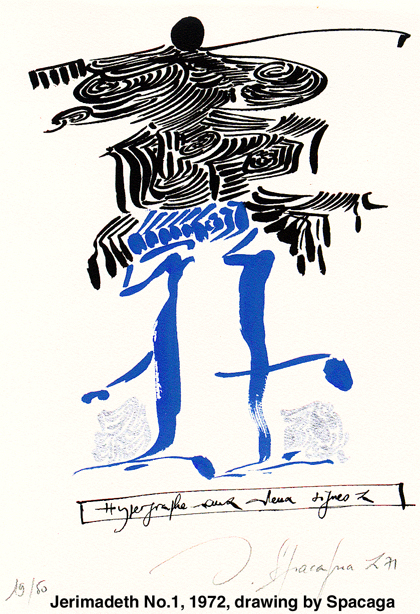 Hypergraphe aux deux signes
19/50 Spacagna 71
Jerimadeth No.1, 1972, drawing by Spacaga